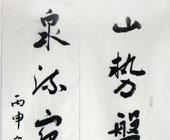 山势盘
泉流
丙申